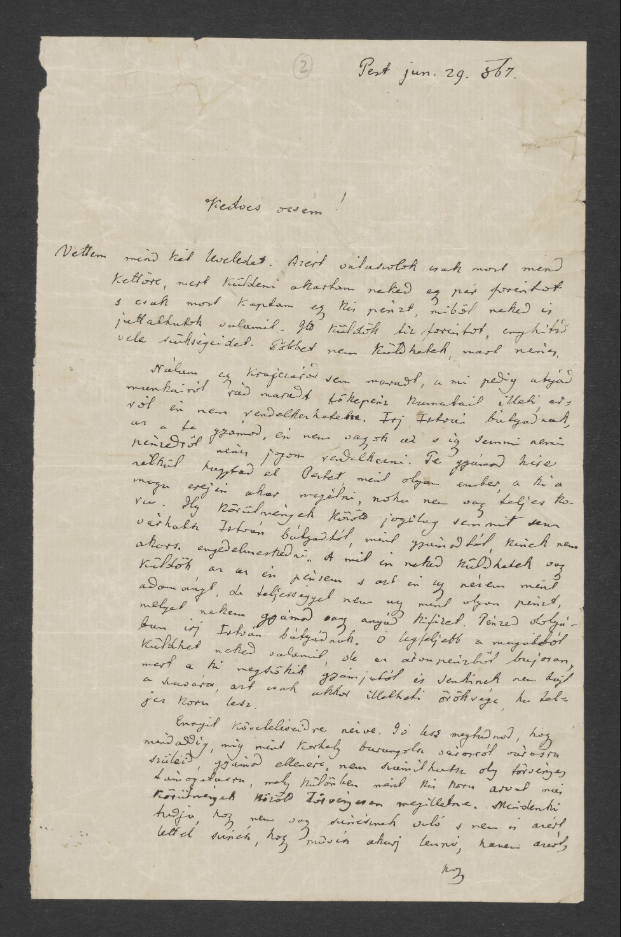 2
Pest jun. 29. 867.
Kedves öcsém!
Vettem mind két leveledet. Azért válaszolok csak most mind
kettőre, mert küldeni akartam neked egy pár forintot
s csak most kaptam egy kis pénzt, miből neked is
juttathatok valamit. Itt küldök tíz forintot, enyhítsd
vele szükségeidet. Többet nem küldhetek, mert nincs,
Nálam egy krajczárod sem maradt, a mi pedig atyád
munkáiról rád maradt tőkepénz kamatait illeti
ról én nem rendelkezhetem. Irj István bátyádnak,
az a te gyámod, én nem vagyok az s így semmi nemű
pénzedről nincs jogom rendelkezni. Te gyámod híre
nélkül hagytad el Pestet, mint olyan ember, a ki a
maga erején akar megélni, noha nem vagy teljes ko-
rú. Ily körülmények között jogilag semmit sem
várhatsz István bátyádtól, mint gyámodtól, kinek nem
akarsz engedelmeskedni. A mit én neked küldhetek vagy
küldök az az én pénzem s azt én így nézem mint
adományt, de teljességgel nem ugy mint olyan pénzt,
melyet nekem gyámod vagy anyád kifizet. Pénzed dolgá-
ban irj István bátyádnak. Ő legfeljebb a magáéból
küldhet neked valamit, de az árvapénzből bajosan,
mert a ki megszökik gyámjától és senkinek nem hajt
a szavára, azt csak akkor illetheti öröksége, ha tel-
jes korú lesz.
Ennyit követeléseidre nézve. Jó lesz megtudnod, hogy
mindaddig, míg mint korhely barangolsz városról városra
szüleid, gyámod ellenére, nem számíthatsz oly törvényes
támogatásra, mely különben mint kis korú árvát más
körülmények között törvényesen megilletne. Mindenki
tudja, hogy nem vagy színésznek való s nem is azért
lettél színész, hogy művész akarj lenni, hanem azért,
hogy